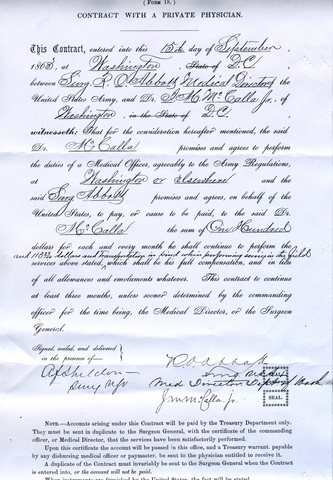 (FORM 18.)
CONTRACT WITH A PRIVATE PHYSICIAN.
This Contract, entered into this 15th day of September,
1863, at Washington, State of D.C.,
between Surg. R. O. Abbott Medical Director of the
United States Army, and Dr. J. M. McCalla Jr., of
Washington, in the State of D.C.
witnesseth: That for the consideration hereafter mentioned, the said
Dr. McCalla promises and agrees to perform
the duties of a Medical Officer, agreeably to the Army Regulations,
at Washington or elsewhere and the
said Surg Abbott promises and agrees, on behalf of the
United States, to pay, or cause to be paid, to the said Dr.
McCalla the sum of One Hundred
dollars for each and every month he shall continue to perform the
and 113 83/100 dollars and transportation in kind when performing service in the field
services above stated, which shall be his full compensation, and in lieu
of all allowances and emoluments whatever. This contract to continue
at least three months, unless sooner determined by the commanding
officer for the time being, the Medical Director, or the Surgeon
General.
Signed, sealed, and delivered
in the presence of—
Sheldon
R O Abbott
Surg
Med Director Dept of Wash
J. M. McCalla Jr.
SEAL
NOTE.—Accounts arising under this Contract will be paid by the Treasury Department only.
They must be sent in duplicate to the Surgeon General, with the certificate of the commanding
officer, or Medical Director, that the services have been satisfactorily performed.
Upon this certificate the account will be passed in this office, and a Treasury warrant, payable
by any disbursing medical officer or paymaster, be sent to the physician entitled to receive it.
A duplicate of the Contract must invariably be sent to the Surgeon General when the Contract
is entered into, or the account will not be paid.
When instruments are furnished by the United States, the fact will be stated.